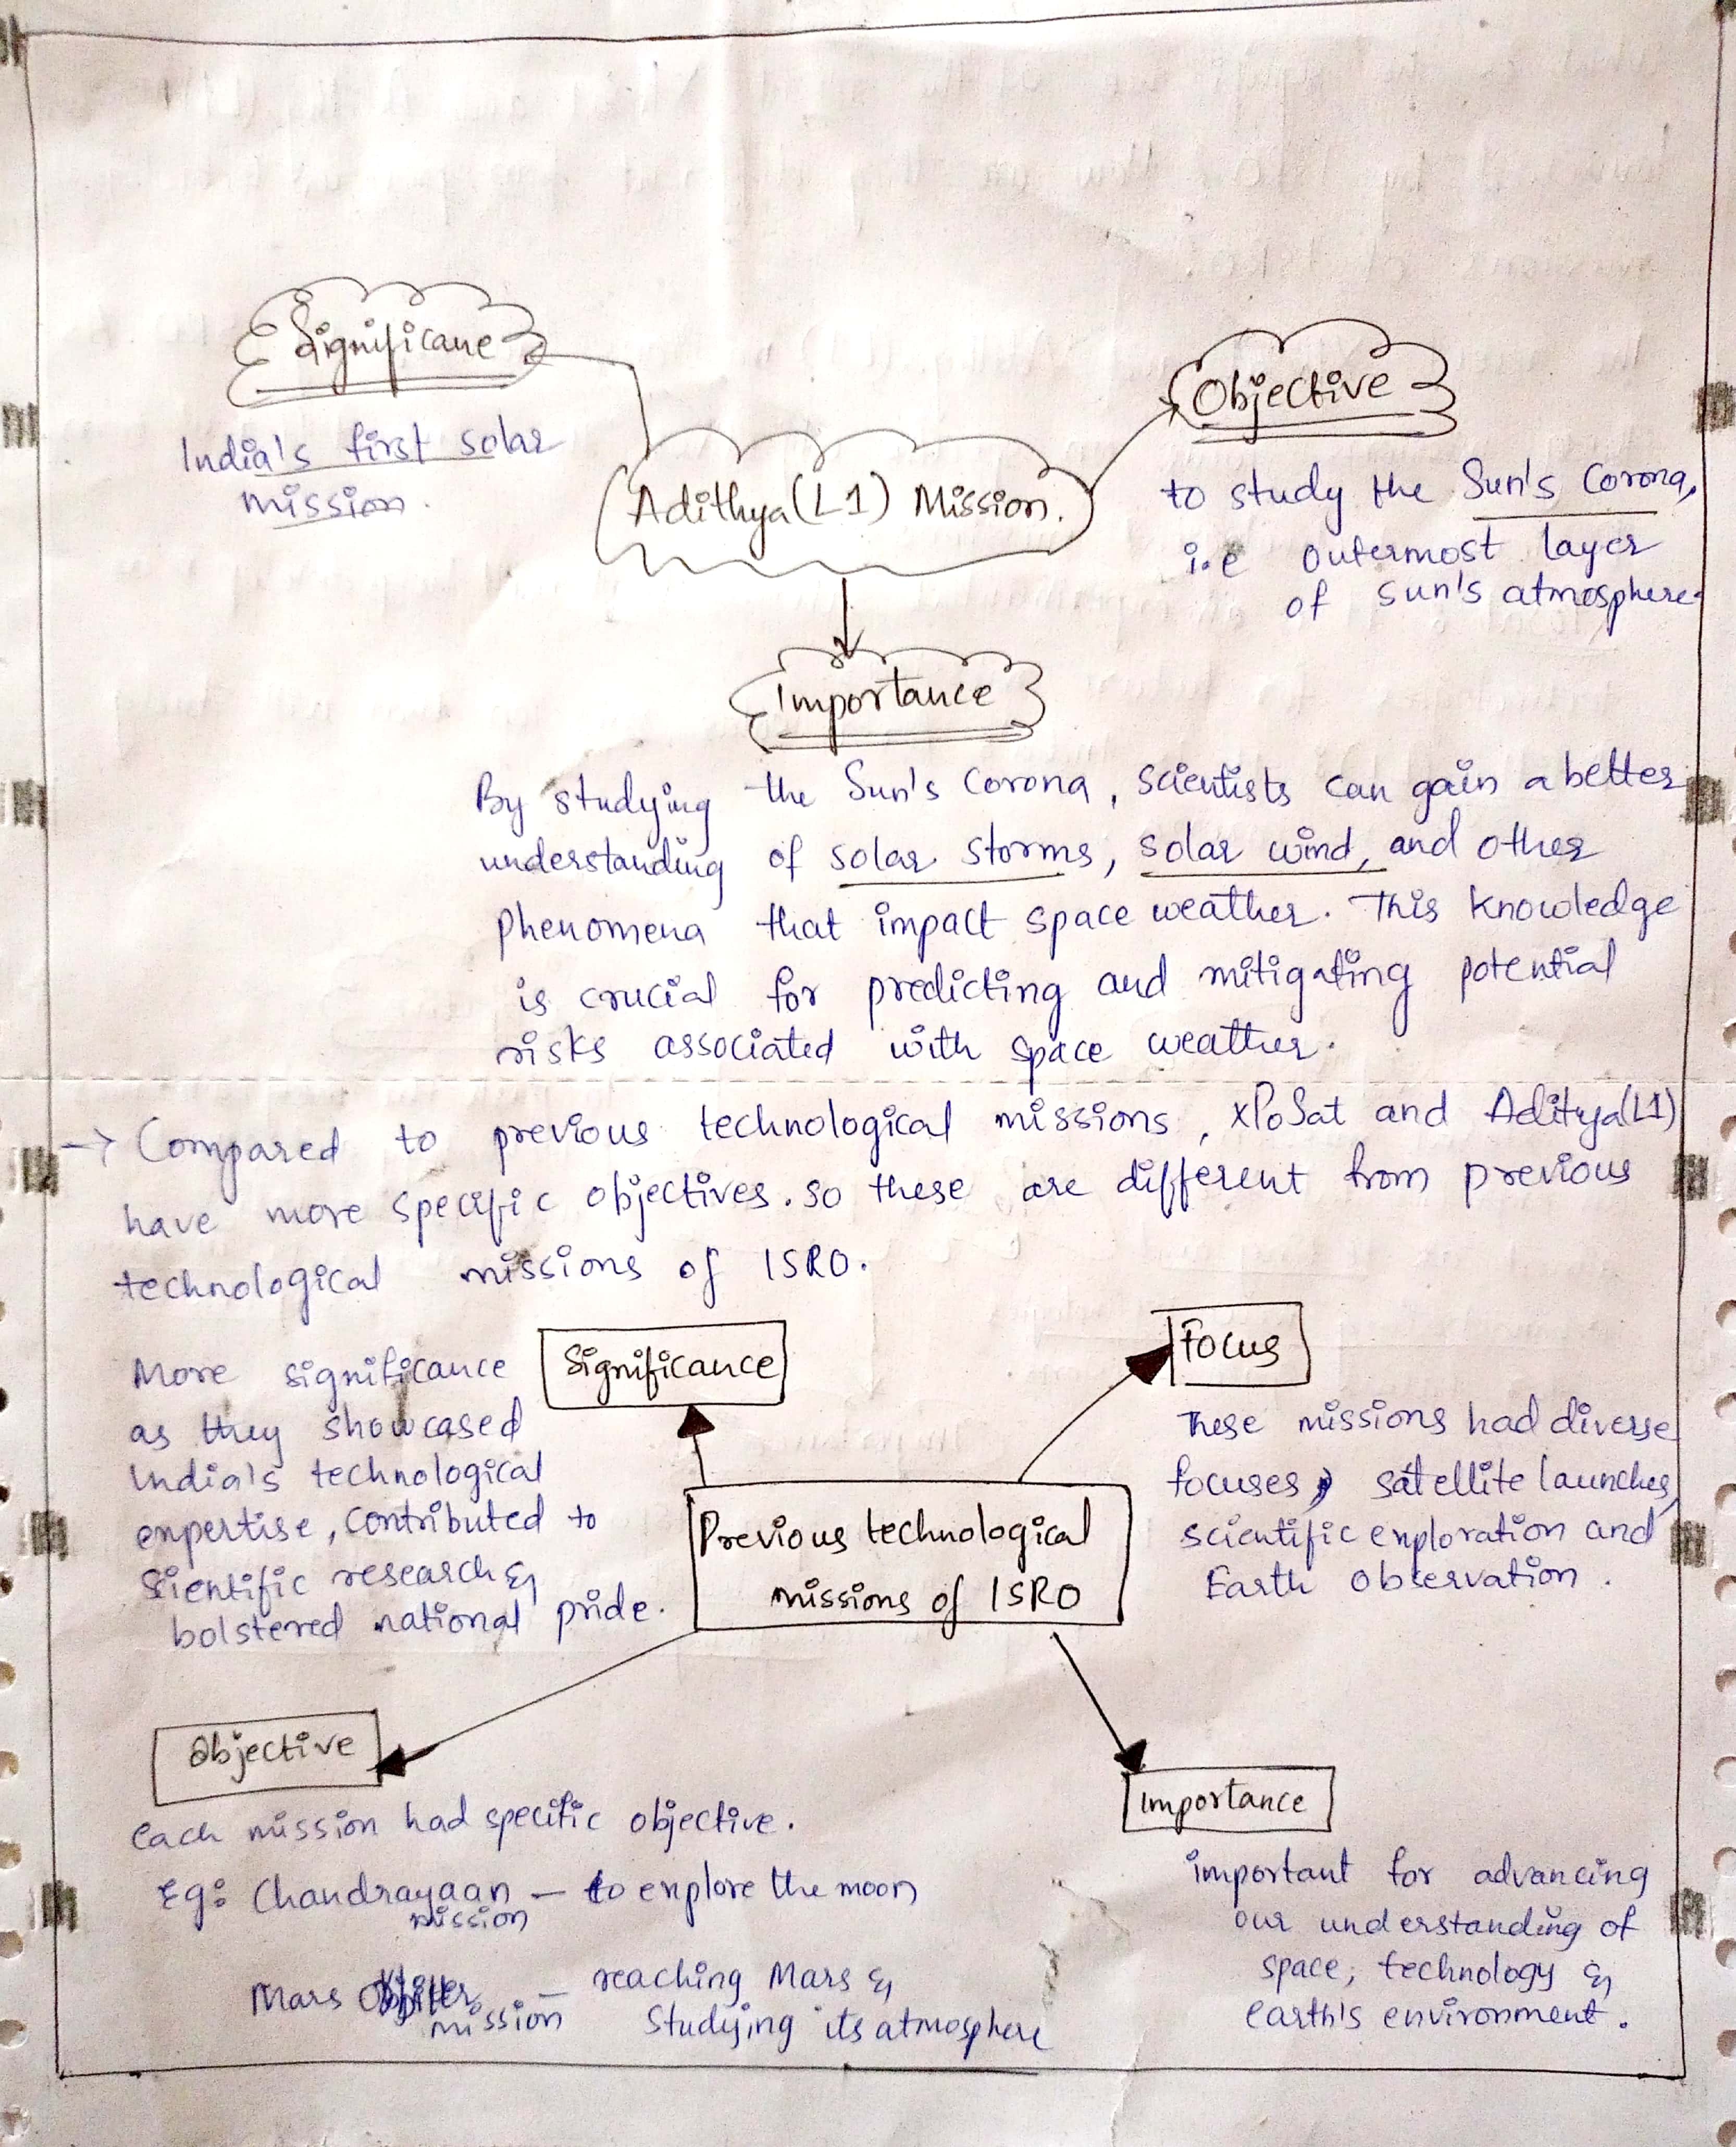 Significane
India's first solar
mission.
Adithya(L1) Mission.
Objective
to study the Sun's Corona,
i.e outermost layer
of sun's atmosphere.
Importance
By studying the Sun's Corona, scientists can gain a better
understanding of solar storms, solar wind, and other
phenomena that impact space weather. This knowledge
is crucial for predicting and mitigating potential
risks associated with space weather.
→ Compared to previous technological missions, XPoSat and Aditya(L1)
have more specific objectives. so these are different from previous
technological missions of ISRO.
Significance
More significance
as they showcased
India's technological
expertise, contributed to
Scientific research &
bolstered national pride.
Focus
These missions had diverse
focuses, satellite launches,
scientific exploration and
Earth observation.
Previous technological
missions of ISRO
Objective
Each mission had specific objective.
Eg: Chandrayaan – to explore the moon
mission
Mars – reaching Mars &
mission Studying its atmosphere
Importance
important for advancing
our understanding of
space, technology &
earth's environment.